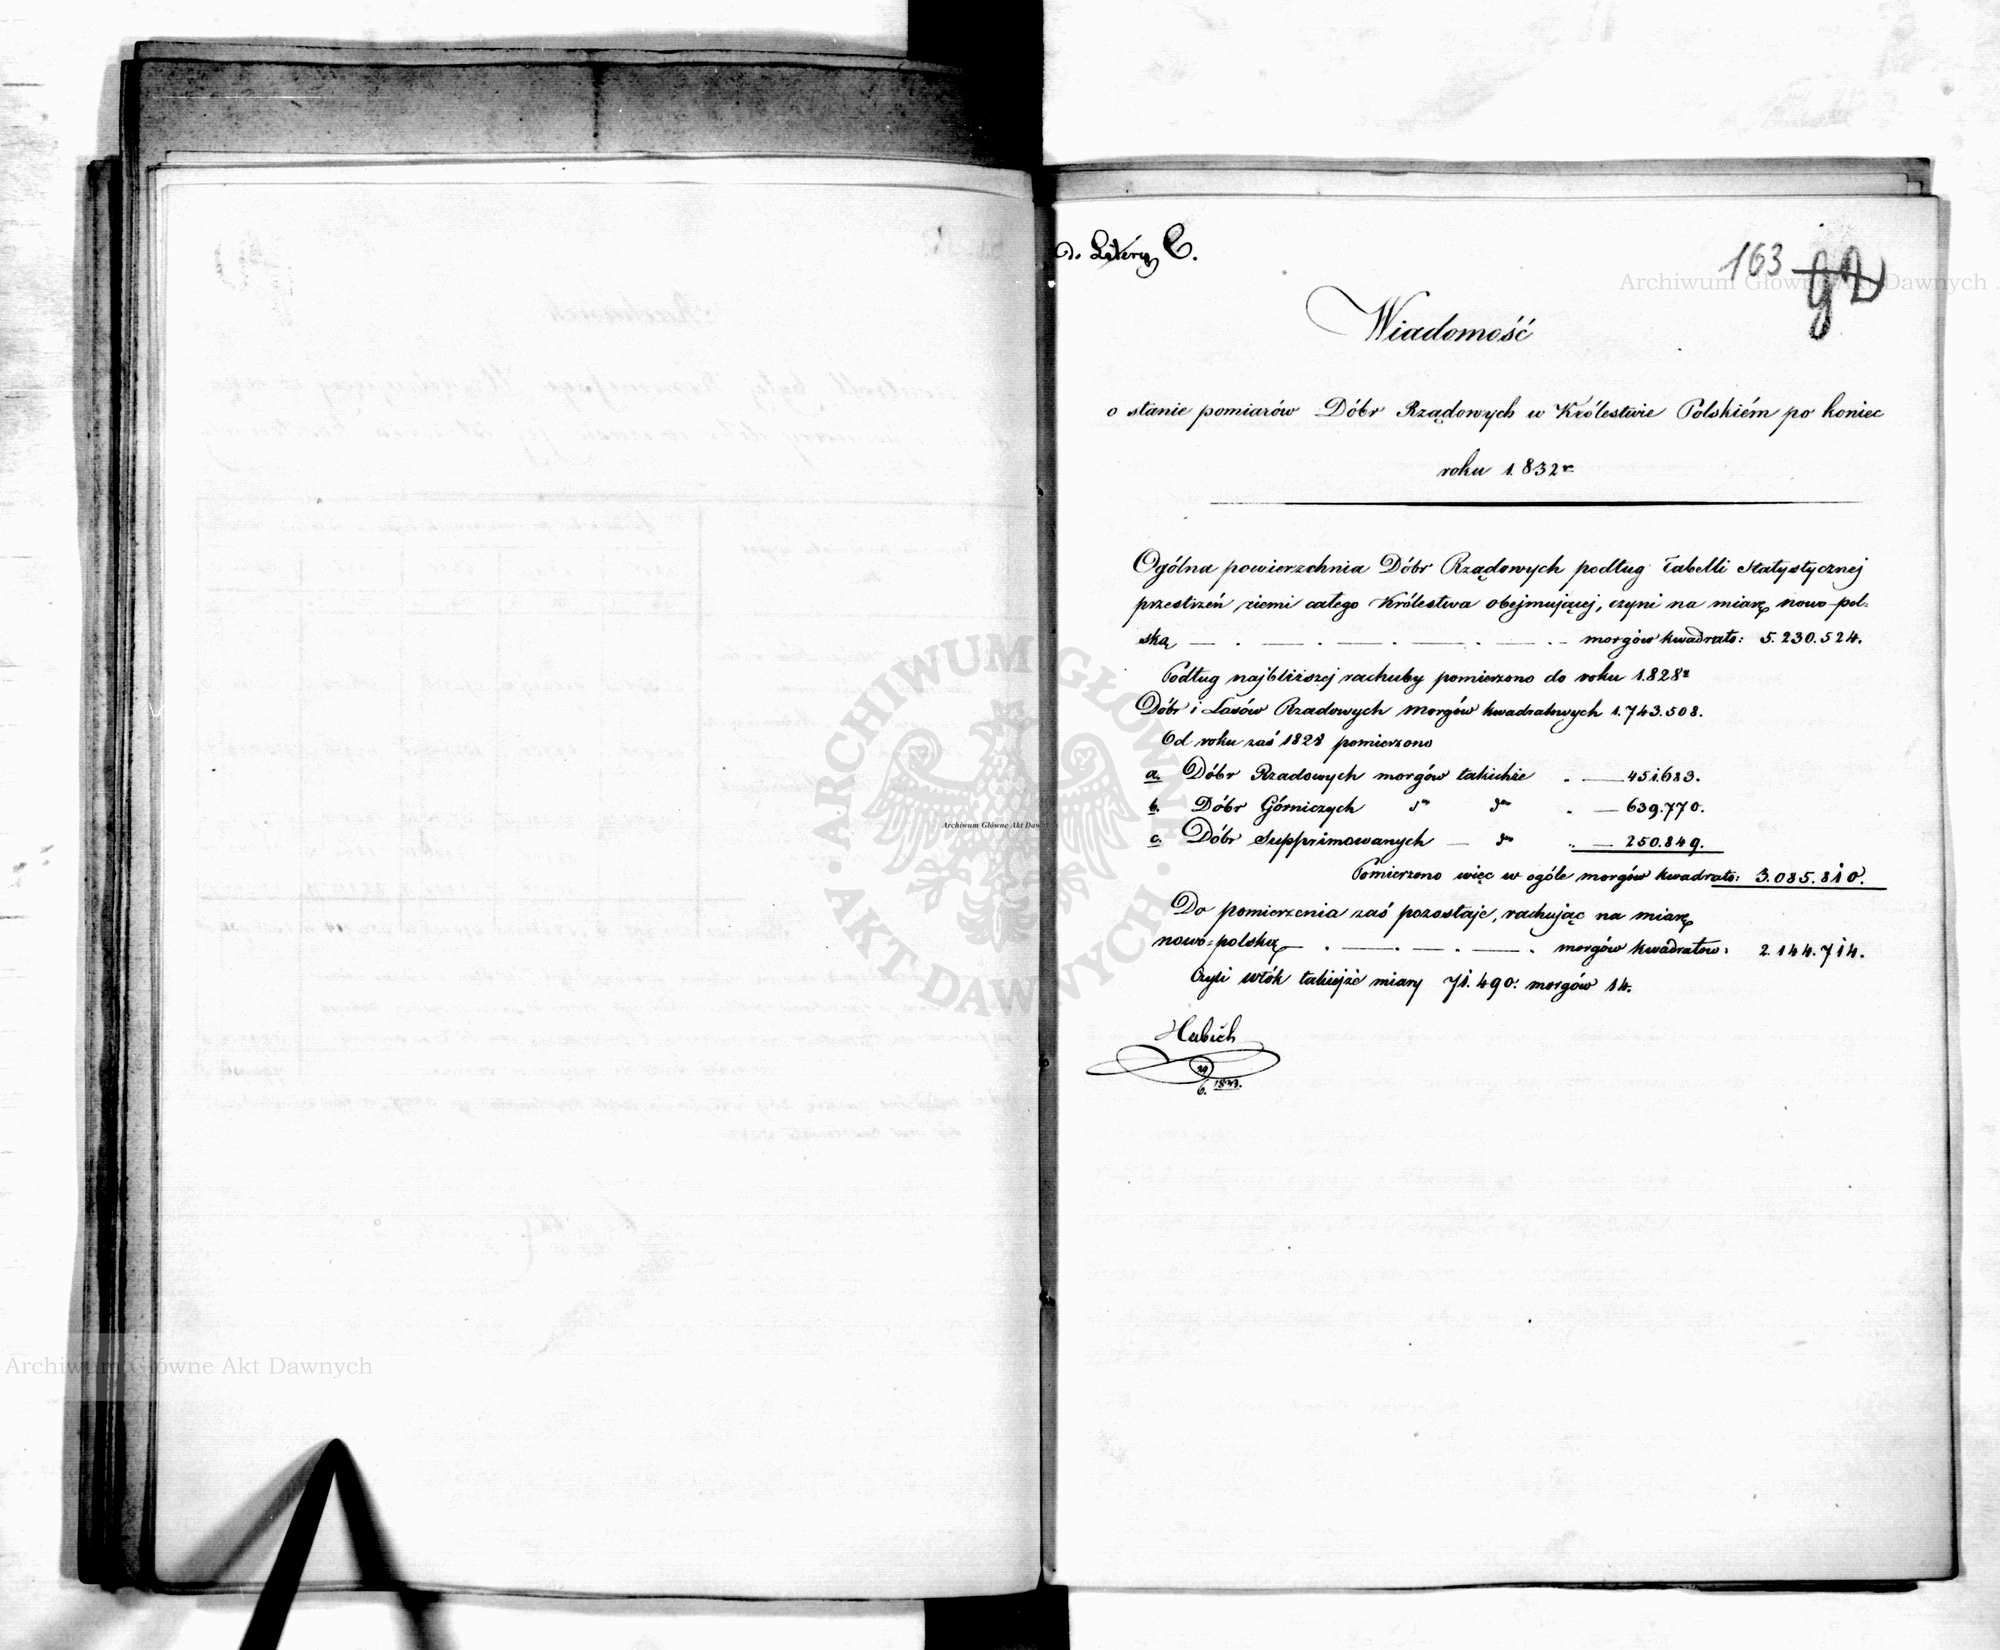 d. Litery C.
163
Wiadomość
o stanie pomiarów Dóbr Rządowych w Królestwie Polskiém po koniec
roku 1832r
Ogólna powierzchnia Dóbr Rządowych podług Tabelli Statystycznej
przestrzeń ziemi całego Królestwa obejmującej, czyni na miarę nowo-pol=
ską morgów kwadrato: 5.230.524.
Podług najbliższej rachuby pomierzono do roku 1828r
Dóbr i Lasów Rządowych morgów kwadratowych 1.743.508.
Od roku zaś 1828 pomierzono
a. Dóbr Rządowych morgów takichże 451.683.
b. Dóbr Górniczych 639.770.
c. Dóbr Supprimowanych 250.849.
Pomierzono więc w ogóle morgów kwadrato: 3.085.810.
Do pomierzenia zaś pozostaje, rachując na miarę
nowo=polską morgów kwadratow: 2.144.714.
Czyli włók takiejże miary 71.490. morgów 14.
Hubich
Archiwum Główne Akt Dawnych
ARCHIWUM GŁÓWNE AKT DAWNYCH
Archiwum Główne Akt Dawnych
Archiwum Główne Akt Dawnych